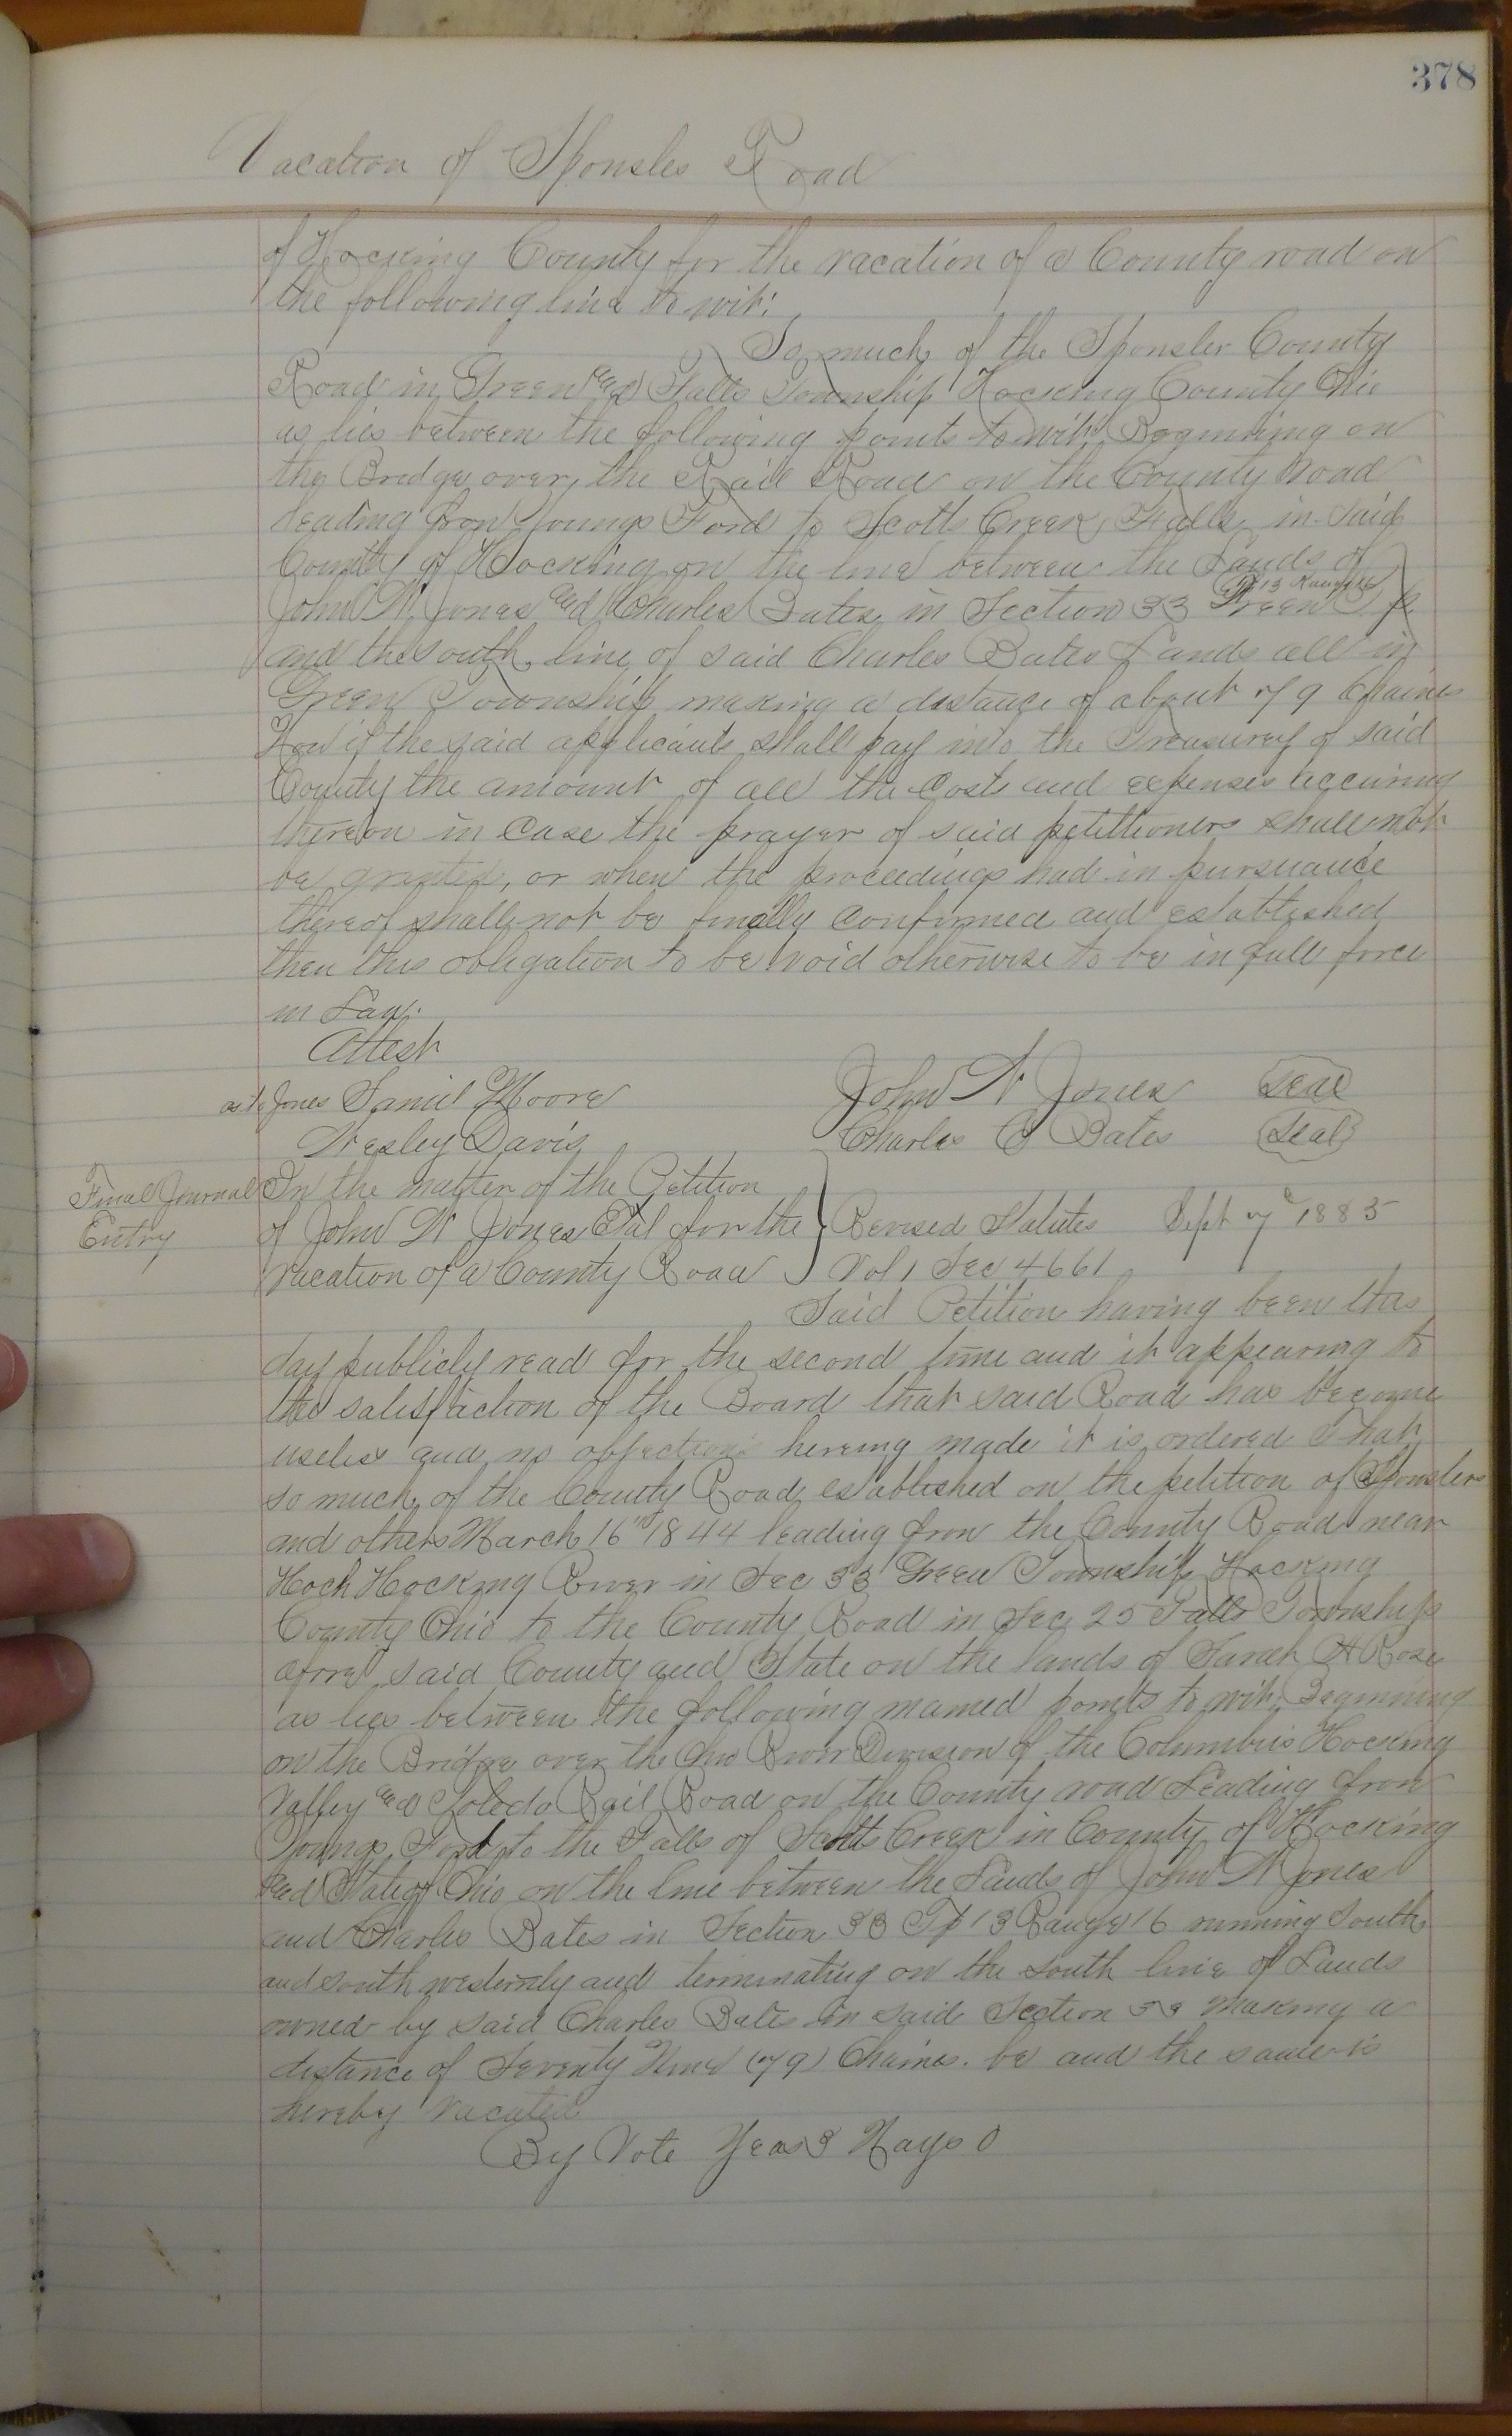 378
Vacation of Sponsler Road
of Hocking County for the vacation of a County road on
the following line to wit:
So much of the Sponsler County
Road in Green and Falls Township Hocking County Ohio
as lies between the following points to wit: Beginning on
the Bridge over the Rail Road on the County Road
leading from Youngs Ford to Scotts Creek Falls in said
County of Hocking on the line between the Lands of
John W Jones and Charles Bates in Section 33 Green Tp
Tp 13 Range 16
and the south line of said Charles Bates Lands all in
Green Township making a distance of about 79 Chains
Now if the said applicants shall pay into the Treasurey of said
County the amount of all the Costs and expenses accuring
thereon in Case the prayer of said petitioners shall not
be granted, or when the proceedings had in pursuance
thereof shall not be finally Confirmed and established
then this obligation to be void otherwise to be in full force
in Law.
Attest
as to Jones Samiel Moore John W Jones Seal
Wesley Davis Charles C Bates Seal
Final Journal Entry
In the matter of the Petition
of John W Jones Etal for the Revised Statutes Sept 7th 1885
Vacation of a County Road Vol 1 Sec 4661
Said Petition having been this
day publicly read for the second time and it appearing to
the satisfaction of the Board that said Road has become
useless and no objections hereing made it is ordered That
so much of the County Road established on the petition of Sponslers
and others March 16th 1844 leading from the County Road near
Hoch Hocking River in Sec 33 Green Township Hocking
County Ohio to the County Road in Sec 25 Falls Township
afore said County and State on the lands of Sarah A Rose
as lies between the following named points to wit: Beginning
on the Bridge over the Ohio River Division of the Columbus Hocking
Valley and Toledo Rail Road on the County road Leading from
Youngs Ford to the Falls of Scotts Creek in County of Hocking
and State of Ohio on the line between the Lands of John W Jones
and Charles Bates in Section 33 Tp 13 Range 16 running South
and south westernly and terminating on the south line of Lands
owned by said Charles Bates in said Section 33 Making a
distance of Seventy Nine (79) Chains. be and the same is
hereby vacated
By Vote Yeas 3 Nays 0